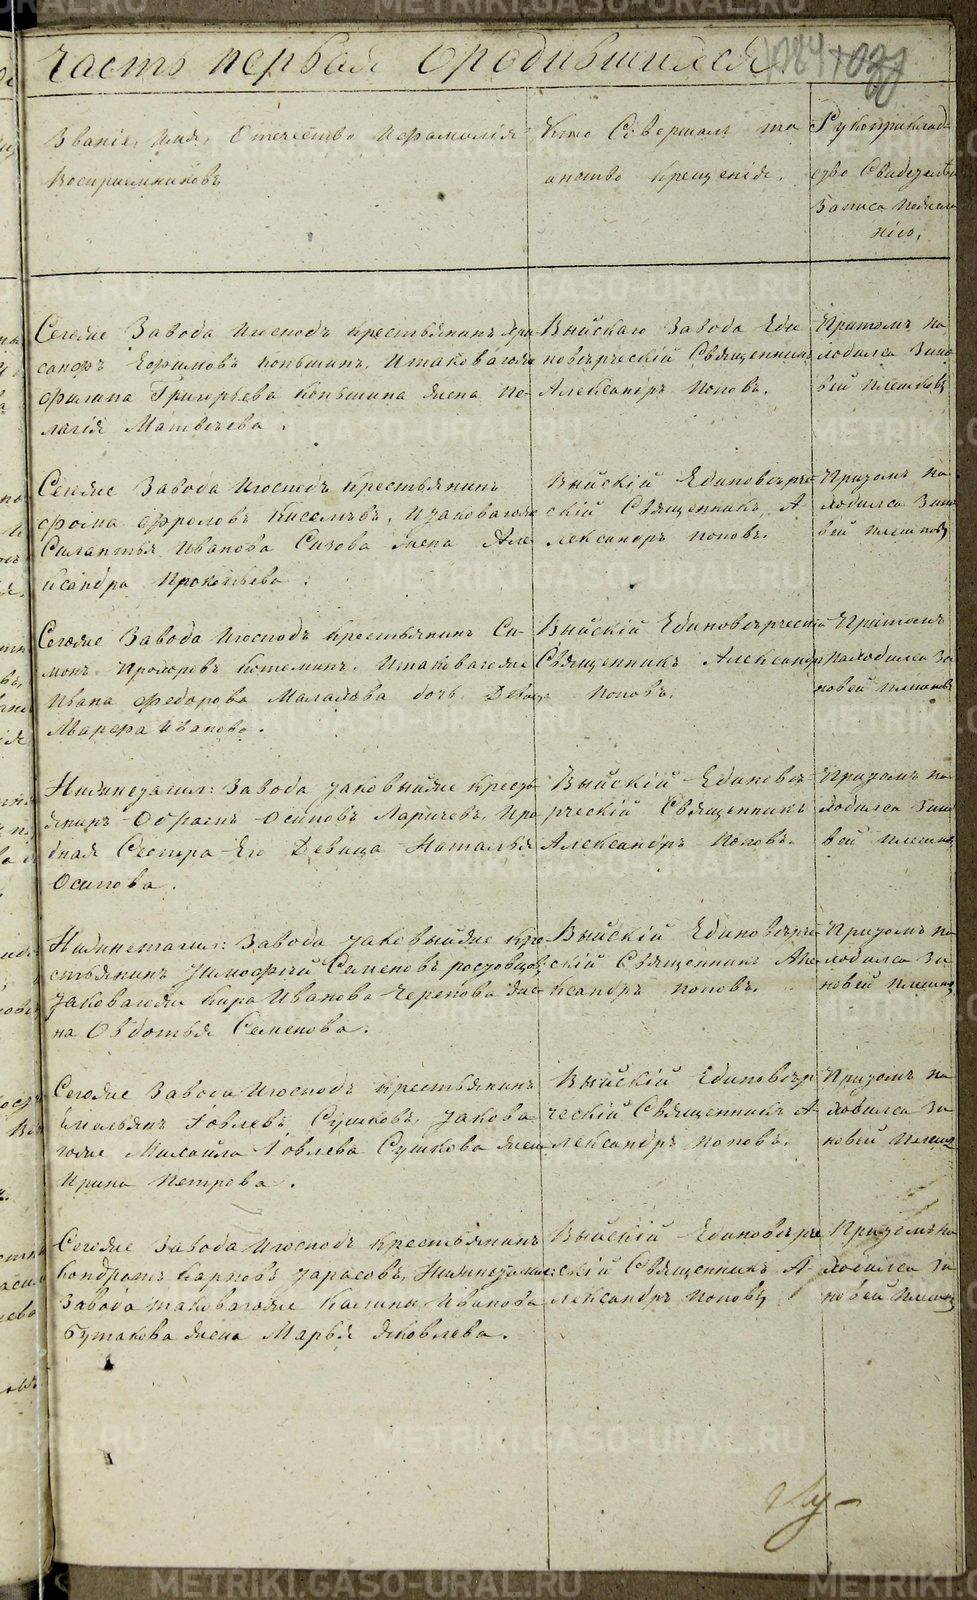 часть первая о родившихся
Званіе, Имя, Отечество И фамилія
Воспріемниковъ
Кто Совершалъ та
инство крещенія.
Рукоприклад
ство Свидетел
Записа
ніи.
Сегоже Завода Игосподъ крестьянинъ
Ефимовъ копышинъ, Итаковагоже
филипа Григорьева копышина жена Пе-
лагія Матвеева.
Выйскаго Завода Еди
новѣрческій Священникъ
Александръ Поповъ.
Притомъ на
ходился Зино
вей
Сегоже Завода Игосподъ крестьянинъ
фома фроловъ Киселевъ, Итаковагоже
Силантья Иванова Сизова жена Але
ксандра Прокопьева.
Выйскій Единовѣрче
скій Священникъ А
лександръ поповъ.
Притомъ на
ходился Зино
вей
Сегоже Завода Игосподъ крестьянинъ Си-
монъ Котеминъ. Итаковагоже
Ивана Федорова Малахова дочь Девица
Марфа Иванова.
Выйскій Единовѣрчески
Священникъ Александръ
поповъ.
Притомъ
находился Зи
новей
Нижнетагил: Завода таковыйже кресть
янинъ Осиповъ Ларичевъ, Иро
дная Сестра Его Девица Наталья
Осипова.
Выйскій Единовѣ
рческій Священникъ
Александръ Поповъ.
Притомъ на
ходился Зино
вей
Нижнетагил: Завода таковыйже кре
стьянинъ Тимофей Семеновъ ростовцовъ,
таковагоже Кира Иванова Черепова же
на Овдотья Семенова.
Выйскій Единовѣрче
скій Священникъ Але
ксандръ поповъ.
Притомъ на
ходился Зи
новей
Сегоже Завода Игосподъ крестьянинъ
Емельянъ Іовлевъ Сушковъ, такова
гоже Михайла Іовлева Сушкова жена
Ирина Петрова.
Выйскій Единовѣр
ческій Священникъ А
лександръ поповъ.
Притомъ на
ходился Зи
новей
Сегоже Завода Игосподъ крестьянинъ
Кондратъ Карповъ тарасовъ, Нижнетагил:
Завода таковагоже Калины Иванова
Бутакова жена Марья яковлева.
Выйскій Единовѣрче
скій Священникъ А
лександръ поповъ
Притомъ на
ходился Зи
новей